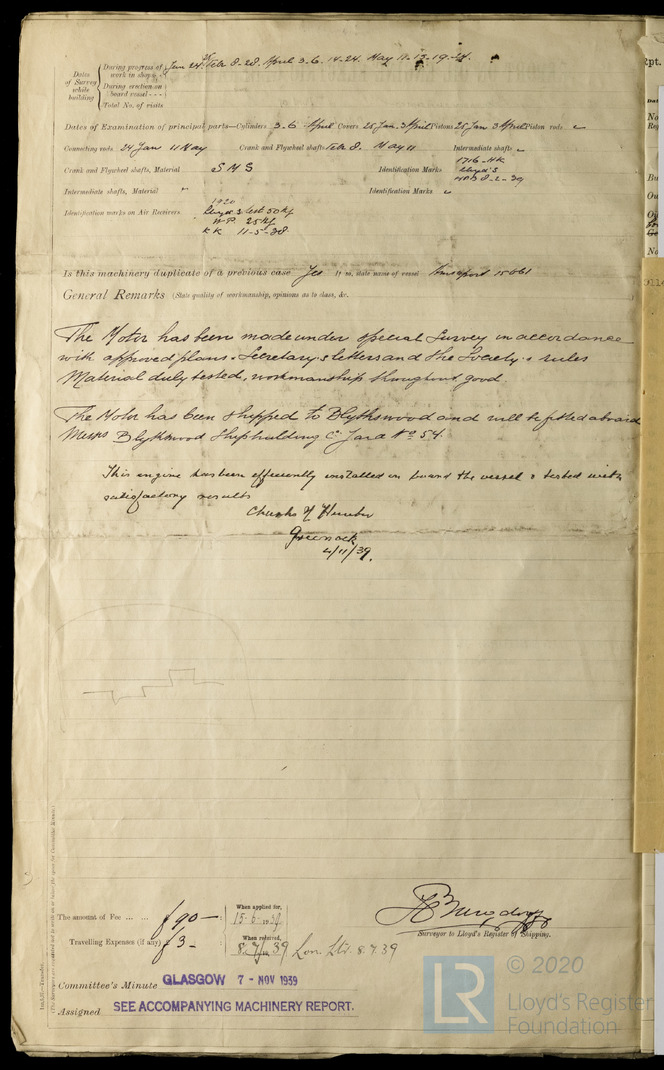 Dates of Survey while building
During progress of work in shops, - - Jan 24. Feb 8-28. April 3-6. 14-24. May 11-17-19-24.
During erection on board vessel - - -
Total No. of visits
Dates of Examination of principal parts—Cylinders 3-6 April Covers 25 Jan 3 April Pistons 25 Jan 3 April Piston rods
Connecting rods 24 Jan 11 May Crank and Flywheel shafts Feb 8 May 11 Intermediate shafts
Crank and Flywheel shafts, Material S M S Identification Marks 1716-HK
Lloyd's
8-2-39
Intermediate shafts, Material " Identification Marks
Identification marks on Air Receivers 1920
Lloyd's test 50 Kg
W.P. 25 Kg
KK 11-5-38
Is this machinery duplicate of a previous case Yes If so, state name of vessel 15061
General Remarks (State quality of workmanship, opinions as to class, &c.
The Motor has been made under special survey in accordance
with approved plans, Secretary's letters and the Society's rules
Material duly tested, workmanship throughout good.
The Motor has been shipped to Blythswood and will be fitted aboard
Messrs Blythswood Shipbuilding Co Yard No 54.
This engine has been efficiently installed on board the vessel & tested with
satisfactory results
Charles H Hunter
Greenock
4/11/39.
The amount of Fee ... ... £ 90 — :
When applied for,
15-6-1939
Travelling Expenses (if any) £ 3 —
When received,
8/7/1939 Lon. Ltr. 8.7.39
Surveyor to Lloyd's Register of Shipping.
Committee's Minute GLASGOW 7 - NOV 1939
Assigned SEE ACCOMPANYING MACHINERY REPORT.
LR
© 2020
Lloyd's Register
Foundation